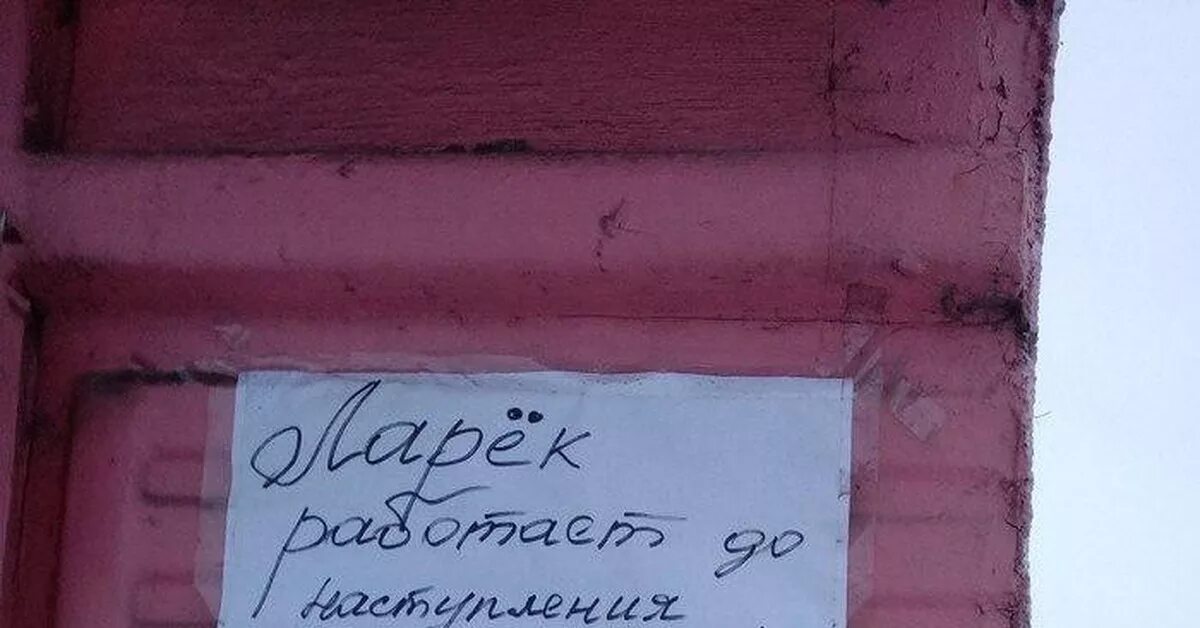 Ларёк
работает до
наступления